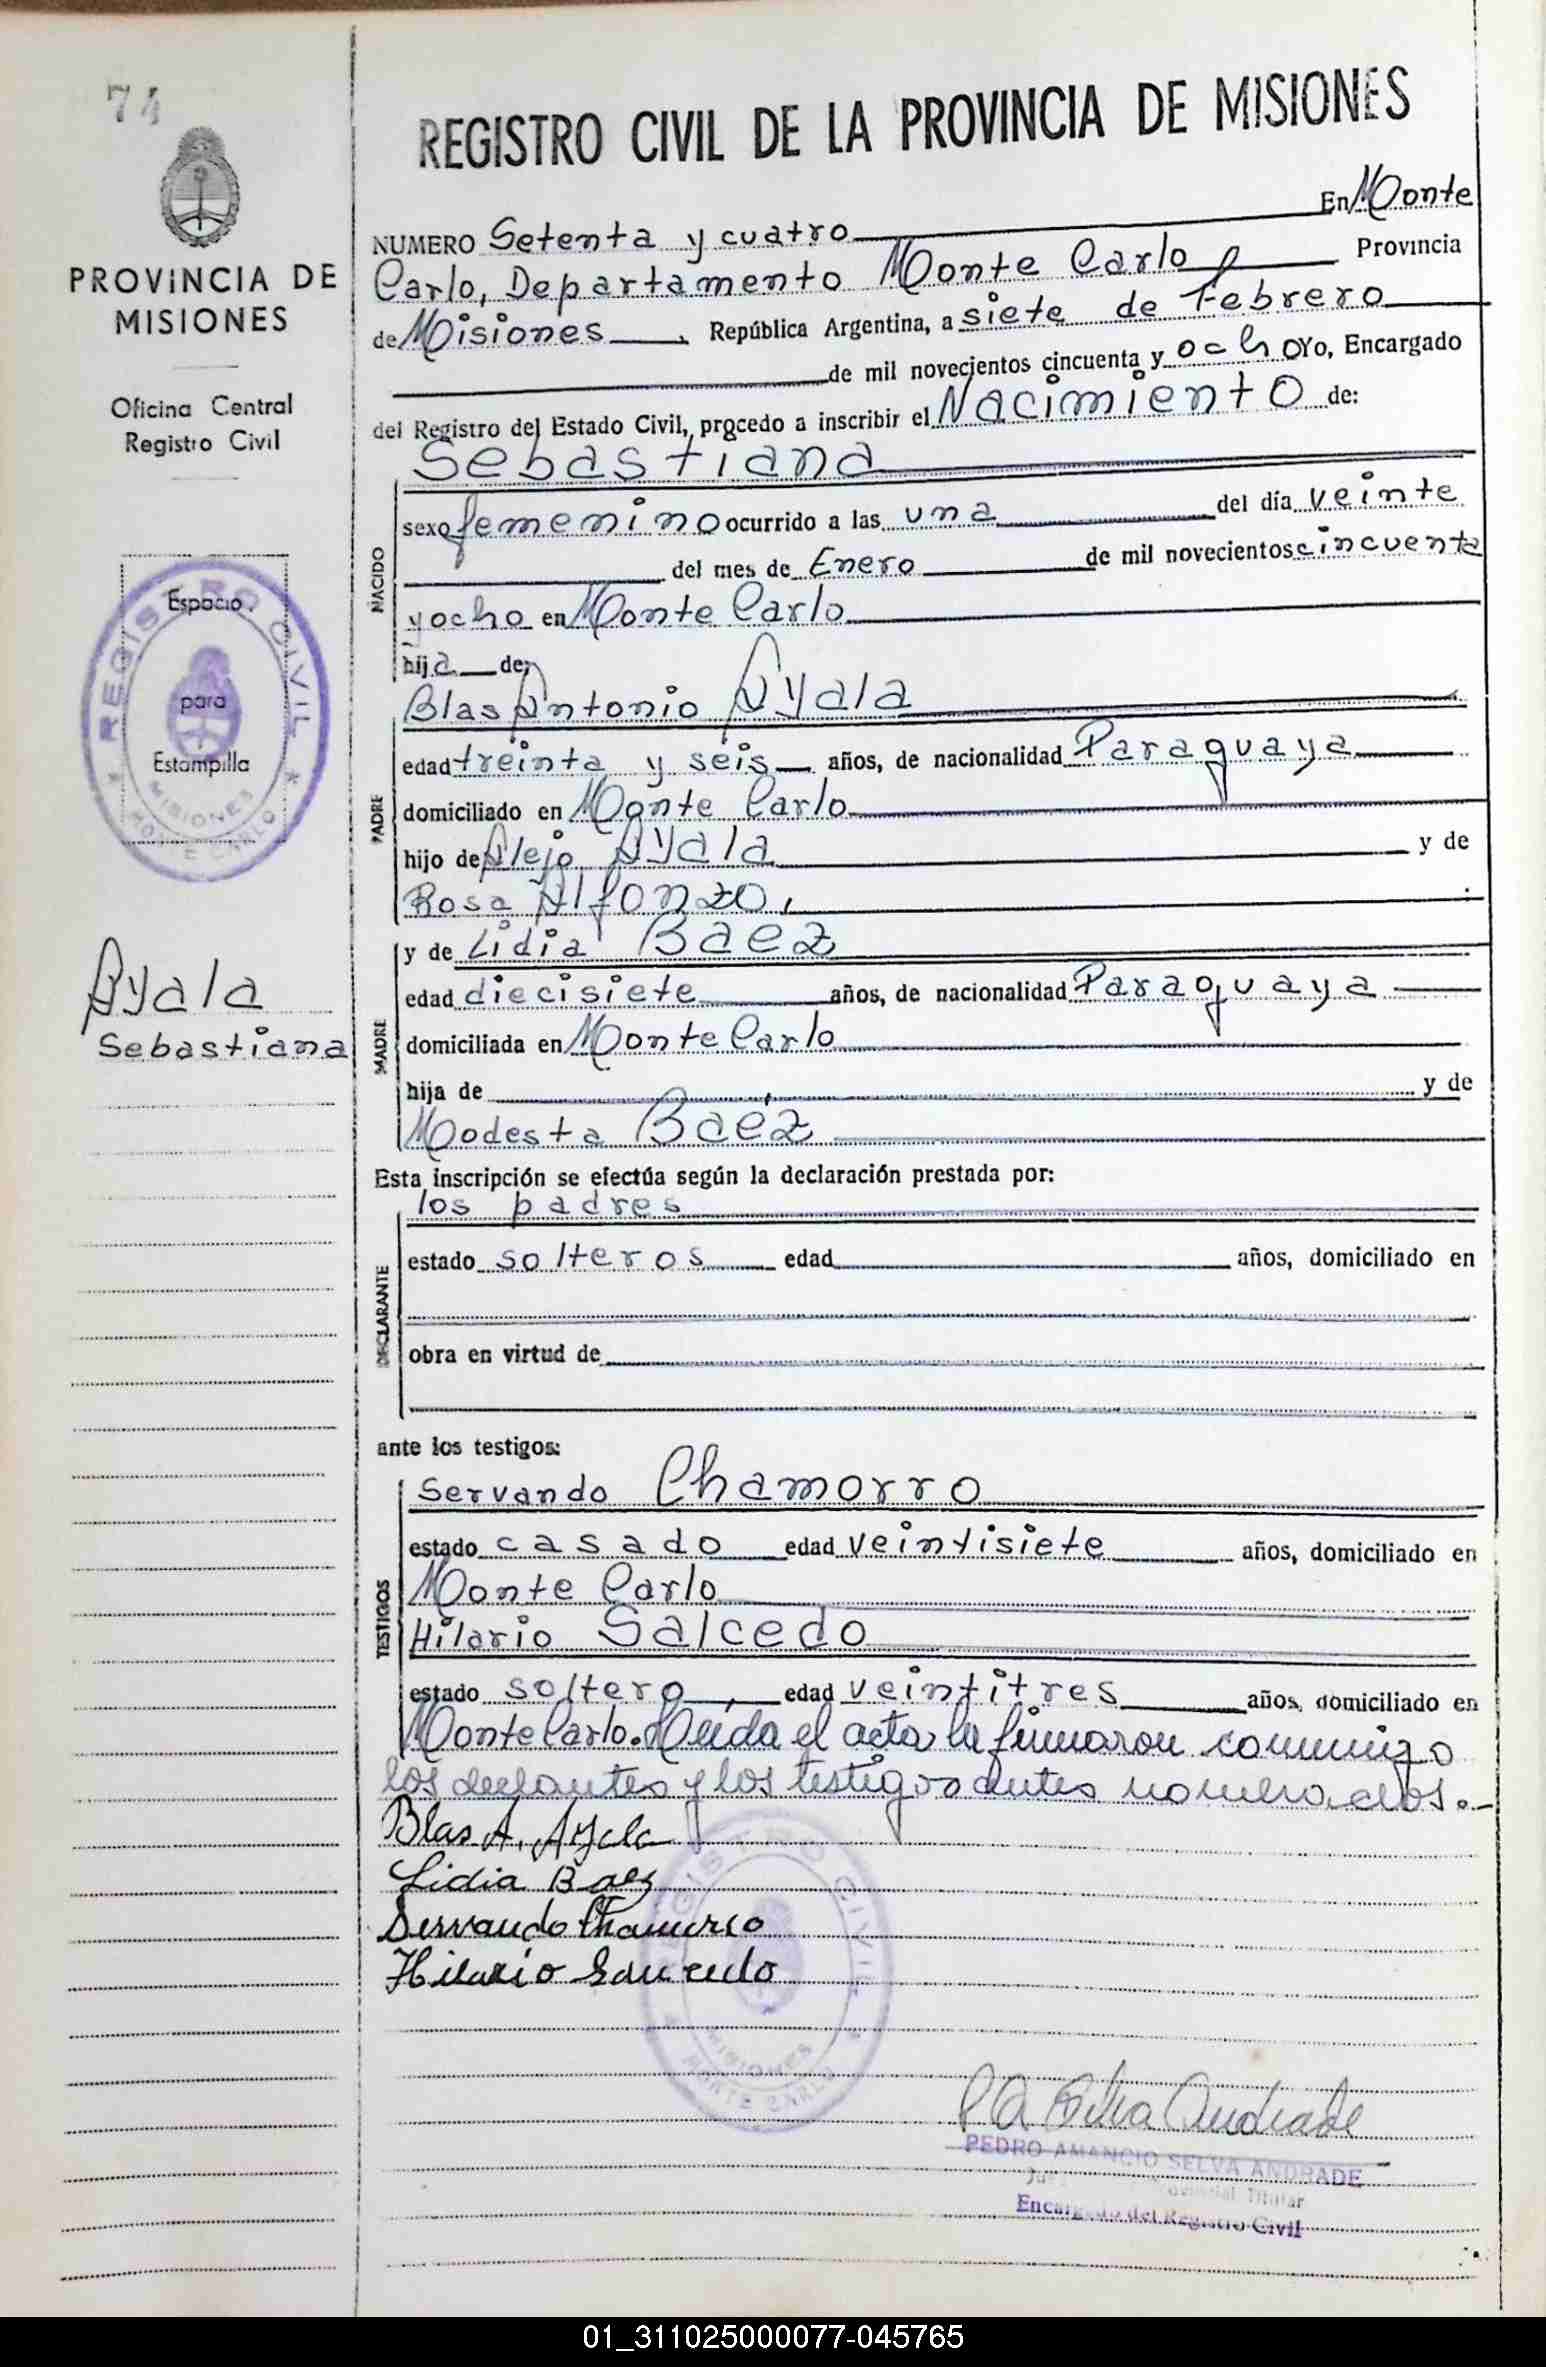 74
PROVINCIA DE
MISIONES
Oficina Central
Registro Civil
REGISTRO CIVIL
Espacio
para
Estampilla
MISIONES
MONTE CARLO
Ayala
Sebastiana
REGISTRO CIVIL DE LA PROVINCIA DE MISIONES
NUMERO Setenta y cuatro En Monte
Carlo, Departamento Monte Carlo Provincia
de Misiones, República Argentina, a siete de Febrero
de mil novecientos cincuenta y ocho Yo, Encargado
del Registro del Estado Civil, procedo a inscribir el Nacimiento de:
NACIDO
Sebastiana
sexo femenino ocurrido a las una del día veinte
del mes de Enero de mil novecientos cincuenta
y ocho en Monte Carlo
hija de:
PADRE
Blas Antonio Ayala
edad treinta y seis años, de nacionalidad Paraguaya
domiciliado en Monte Carlo
hijo de Alejo Ayala y de
Rosa Alfonzo,
MADRE
y de Lidia Baez
edad diecisiete años, de nacionalidad Paraguaya
domiciliada en Monte Carlo
hija de y de
Modesta Baéz
Esta inscripción se efectúa según la declaración prestada por:
DECLARANTE
los padres
estado solteros edad años, domiciliado en
obra en virtud de
ante los testigos:
TESTIGOS
Servando Chamorro
estado casado edad veintisiete años, domiciliado en
Monte Carlo
Hilario Salcedo
estado soltero, edad veintitres años, domiciliado en
Monte Carlo. Leída el acta la firmaron conmigo
los declantes y los testigos antes nombrados.-
Blas A. Ayala
Lidia Baez
Servando Chamorro
Hilario Salcedo
REGISTRO CIVIL
MISIONES
MONTE CARLO
P A Selva Andrade
PEDRO AMANCIO SELVA ANDRADE
Titular
Encargado del Registro Civil
01_311025000077-045765